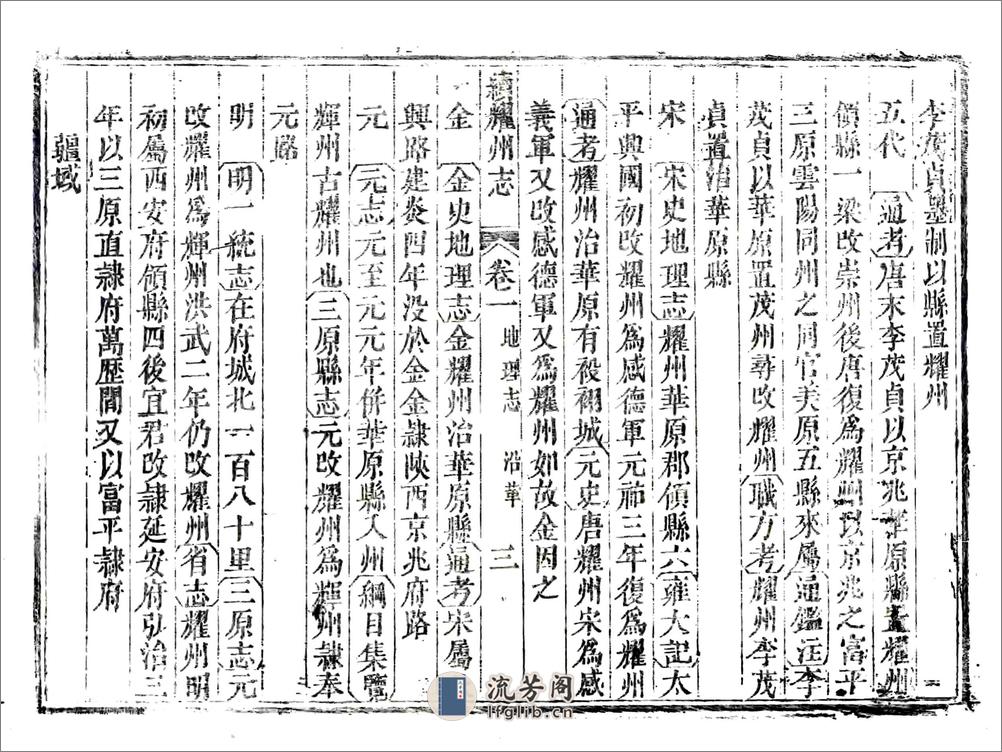 李茂貞墨制以縣置耀州
五代 通考唐末李茂貞以京兆華原縣置耀州
領縣一梁改崇州後唐復爲耀州以京兆之富平
三原雲陽同州之同官美原五縣來屬通鑑注李
茂貞以華原置茂州尋改耀州職方考耀州李茂
貞置治華原縣
宋 宋史地理志耀州華原郡領縣六雍大記太
平興國初改耀州爲感德軍元祐三年復爲耀州
通考耀州治華原有祋祤城元史唐耀州宋爲感
義軍又改感德軍又爲耀州如故金因之
續耀州志 卷一 地理志 沿革 三
金 金史地理志金耀州治華原縣通考宋屬
興路建炎四年没於金金隸陝西京兆府路
元 元志元至元元年併華原縣入州綱目集覽
輝州古耀州也三原縣志元改耀州爲輝州隸奉
元路
明 明一統志在府城北一百八十里三原志元
改耀州爲輝州洪武二年仍改耀州省志耀州明
初屬西安府領縣四後宜君改隸延安府弘治三
年以三原直隸府萬歷間又以富平隸府
疆域
流芳阁
lfglib.cn